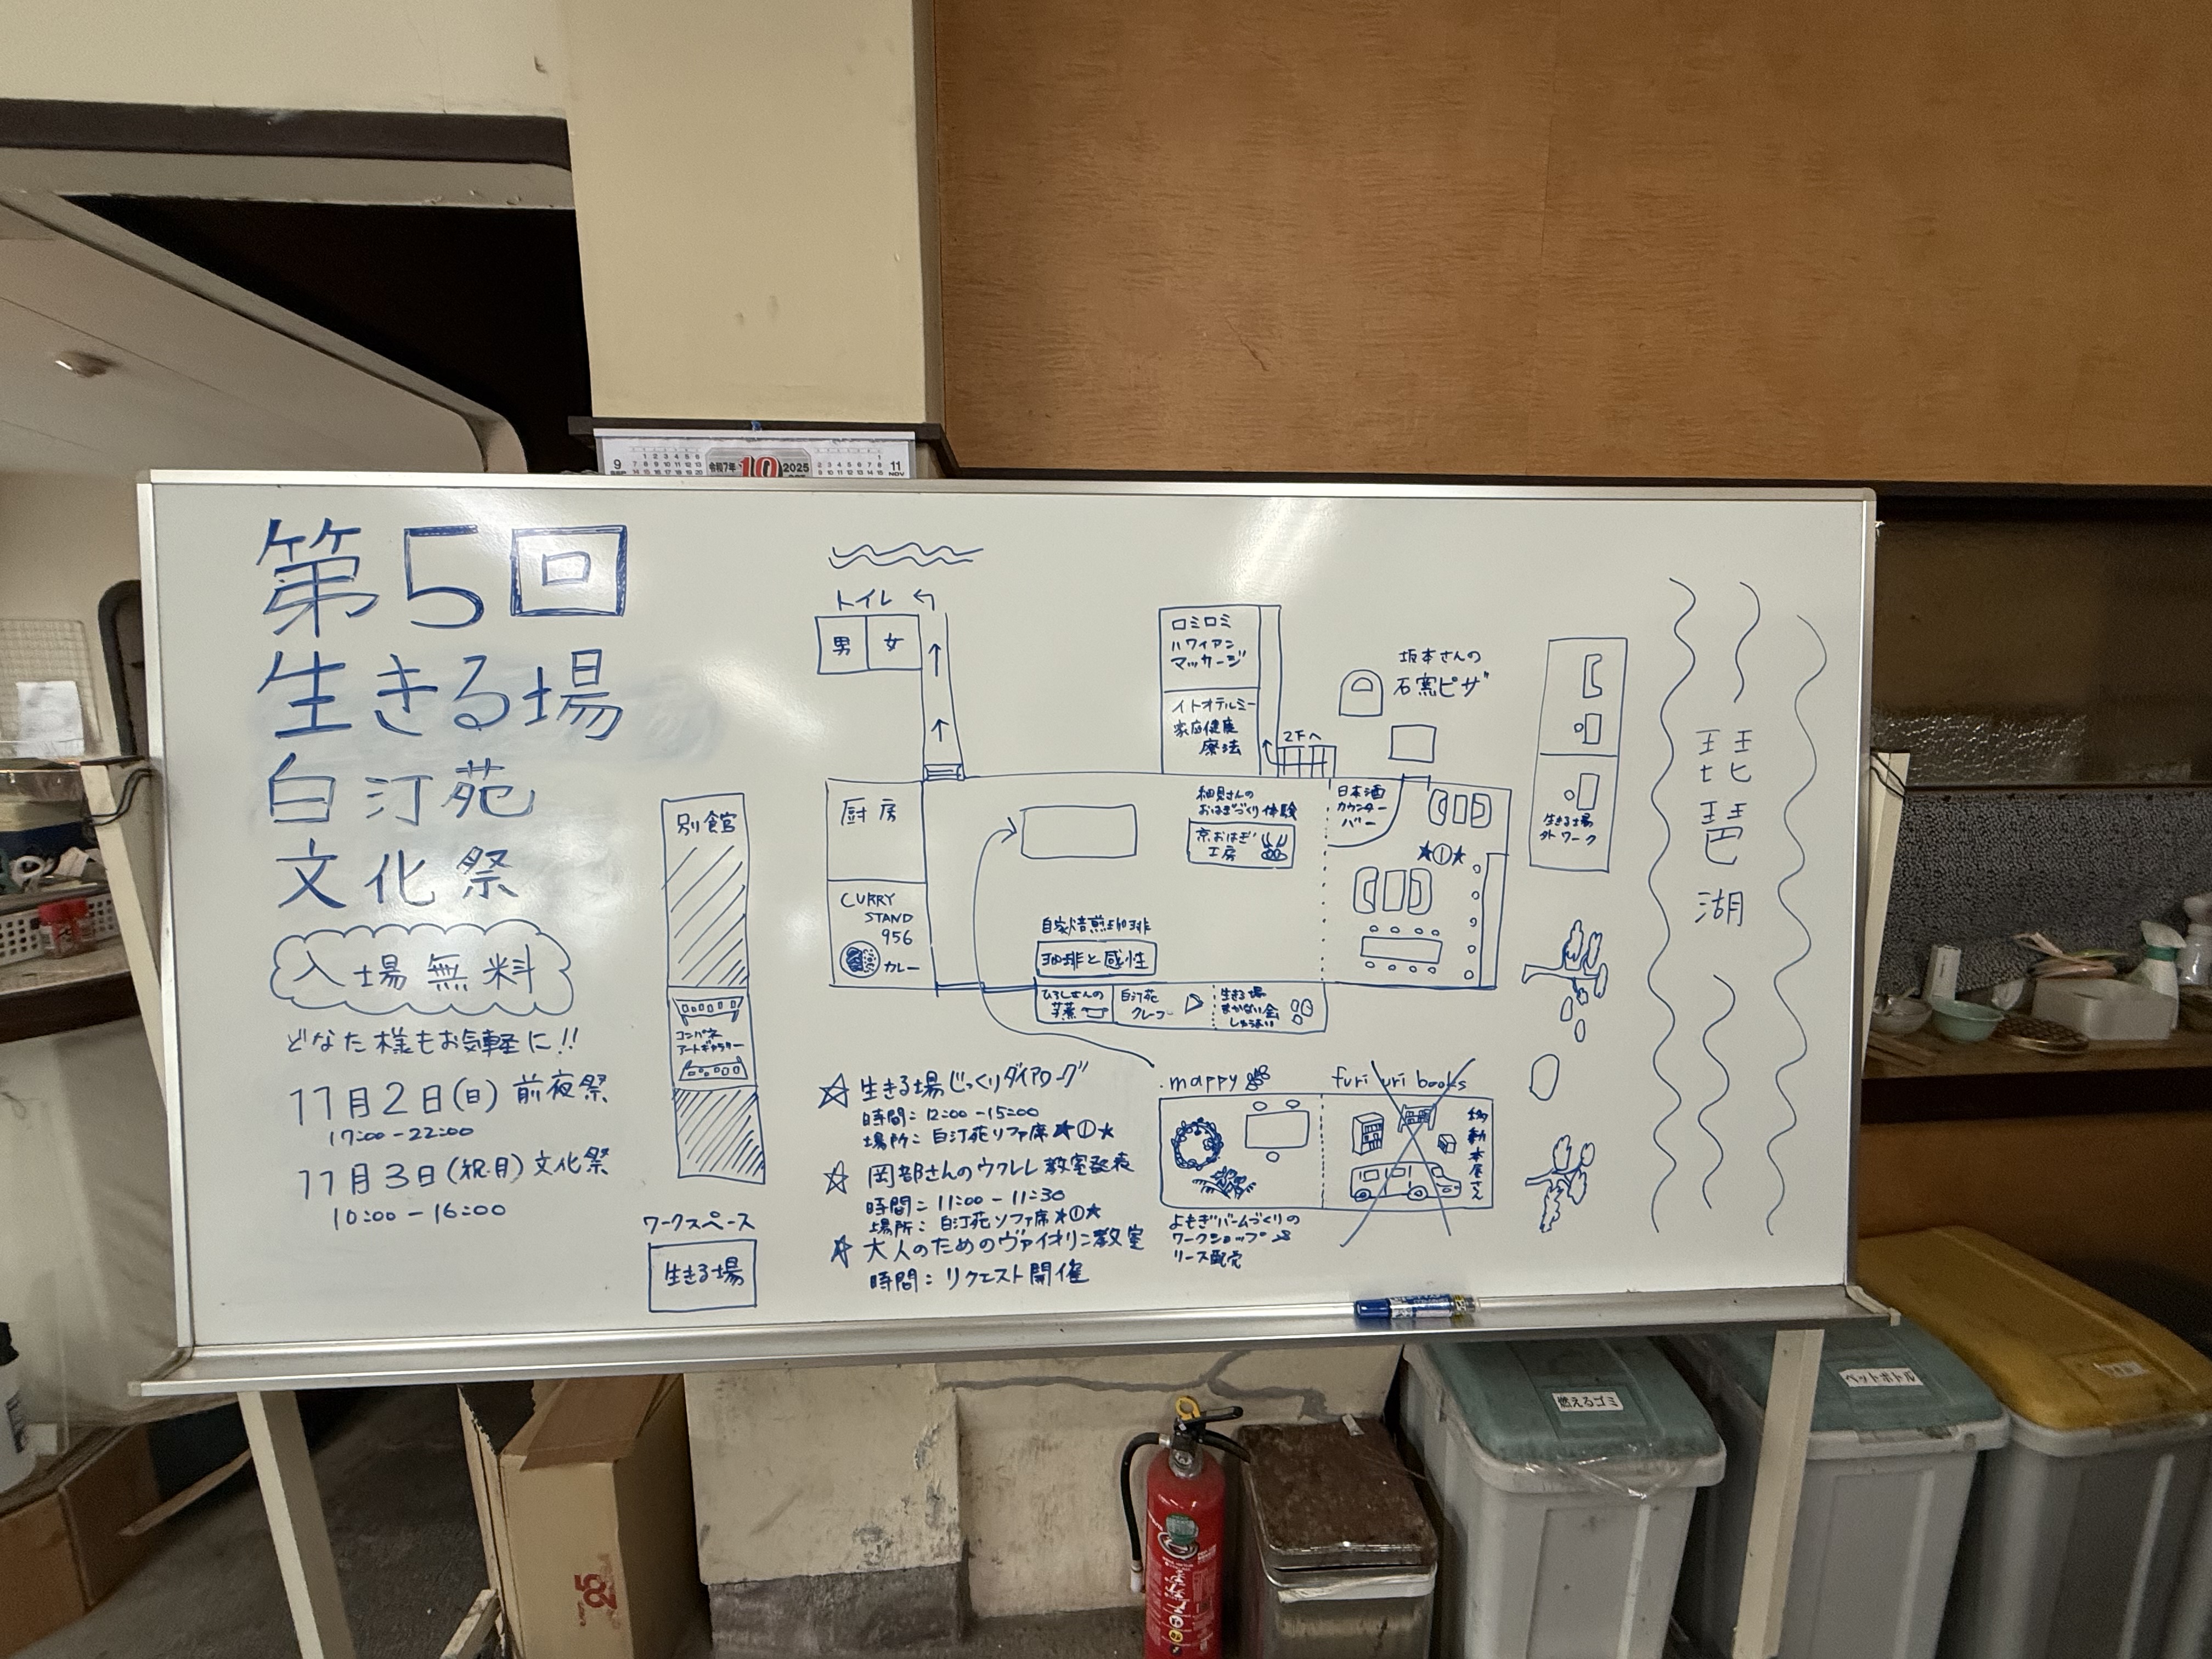 9
令和7年 10 2025
11
NOV
第5回
生きる場
白汀苑
文化祭
入場無料
どなた様もお気軽に!!
11月2日(日)前夜祭
17:00-22:00
11月3日(祝月)文化祭
10:00-16:00
別館
コンパネ
アートギャラリー
ワークスペース
生きる場
トイレ
男 女
厨房
CURRY
STAND
956
カレー
ロミロミ
ハワイアン
マッサージ
イトオテルミー
家庭健康
療法
2Fへ
坂本さんの
石窯ピザ
細見さんの
おはぎづくり体験
京おはぎ
工房
日本酒
カウンター
バー
★①★
自家焙煎珈琲
珈琲と感性
ひろしさんの
芋蒸
白汀苑
クレープ
生きる場
まかない会
しゅうまい
生きる場
外ワーク
琵琶湖
☆生きる場じっくりダイアローグ
時間:12:00-15:00
場所:白汀苑ソファ席★①★
☆岡部さんのウクレレ教室発表
時間:11:00-11:30
場所:白汀苑ソファ席★①★
☆大人のためのヴァイオリン教室
時間:リクエスト開催
mappy
furi uri books
移動本屋さん
よもぎバームづくりの
ワークショップ
リース販売
燃えるゴミ
ペットボトル
25